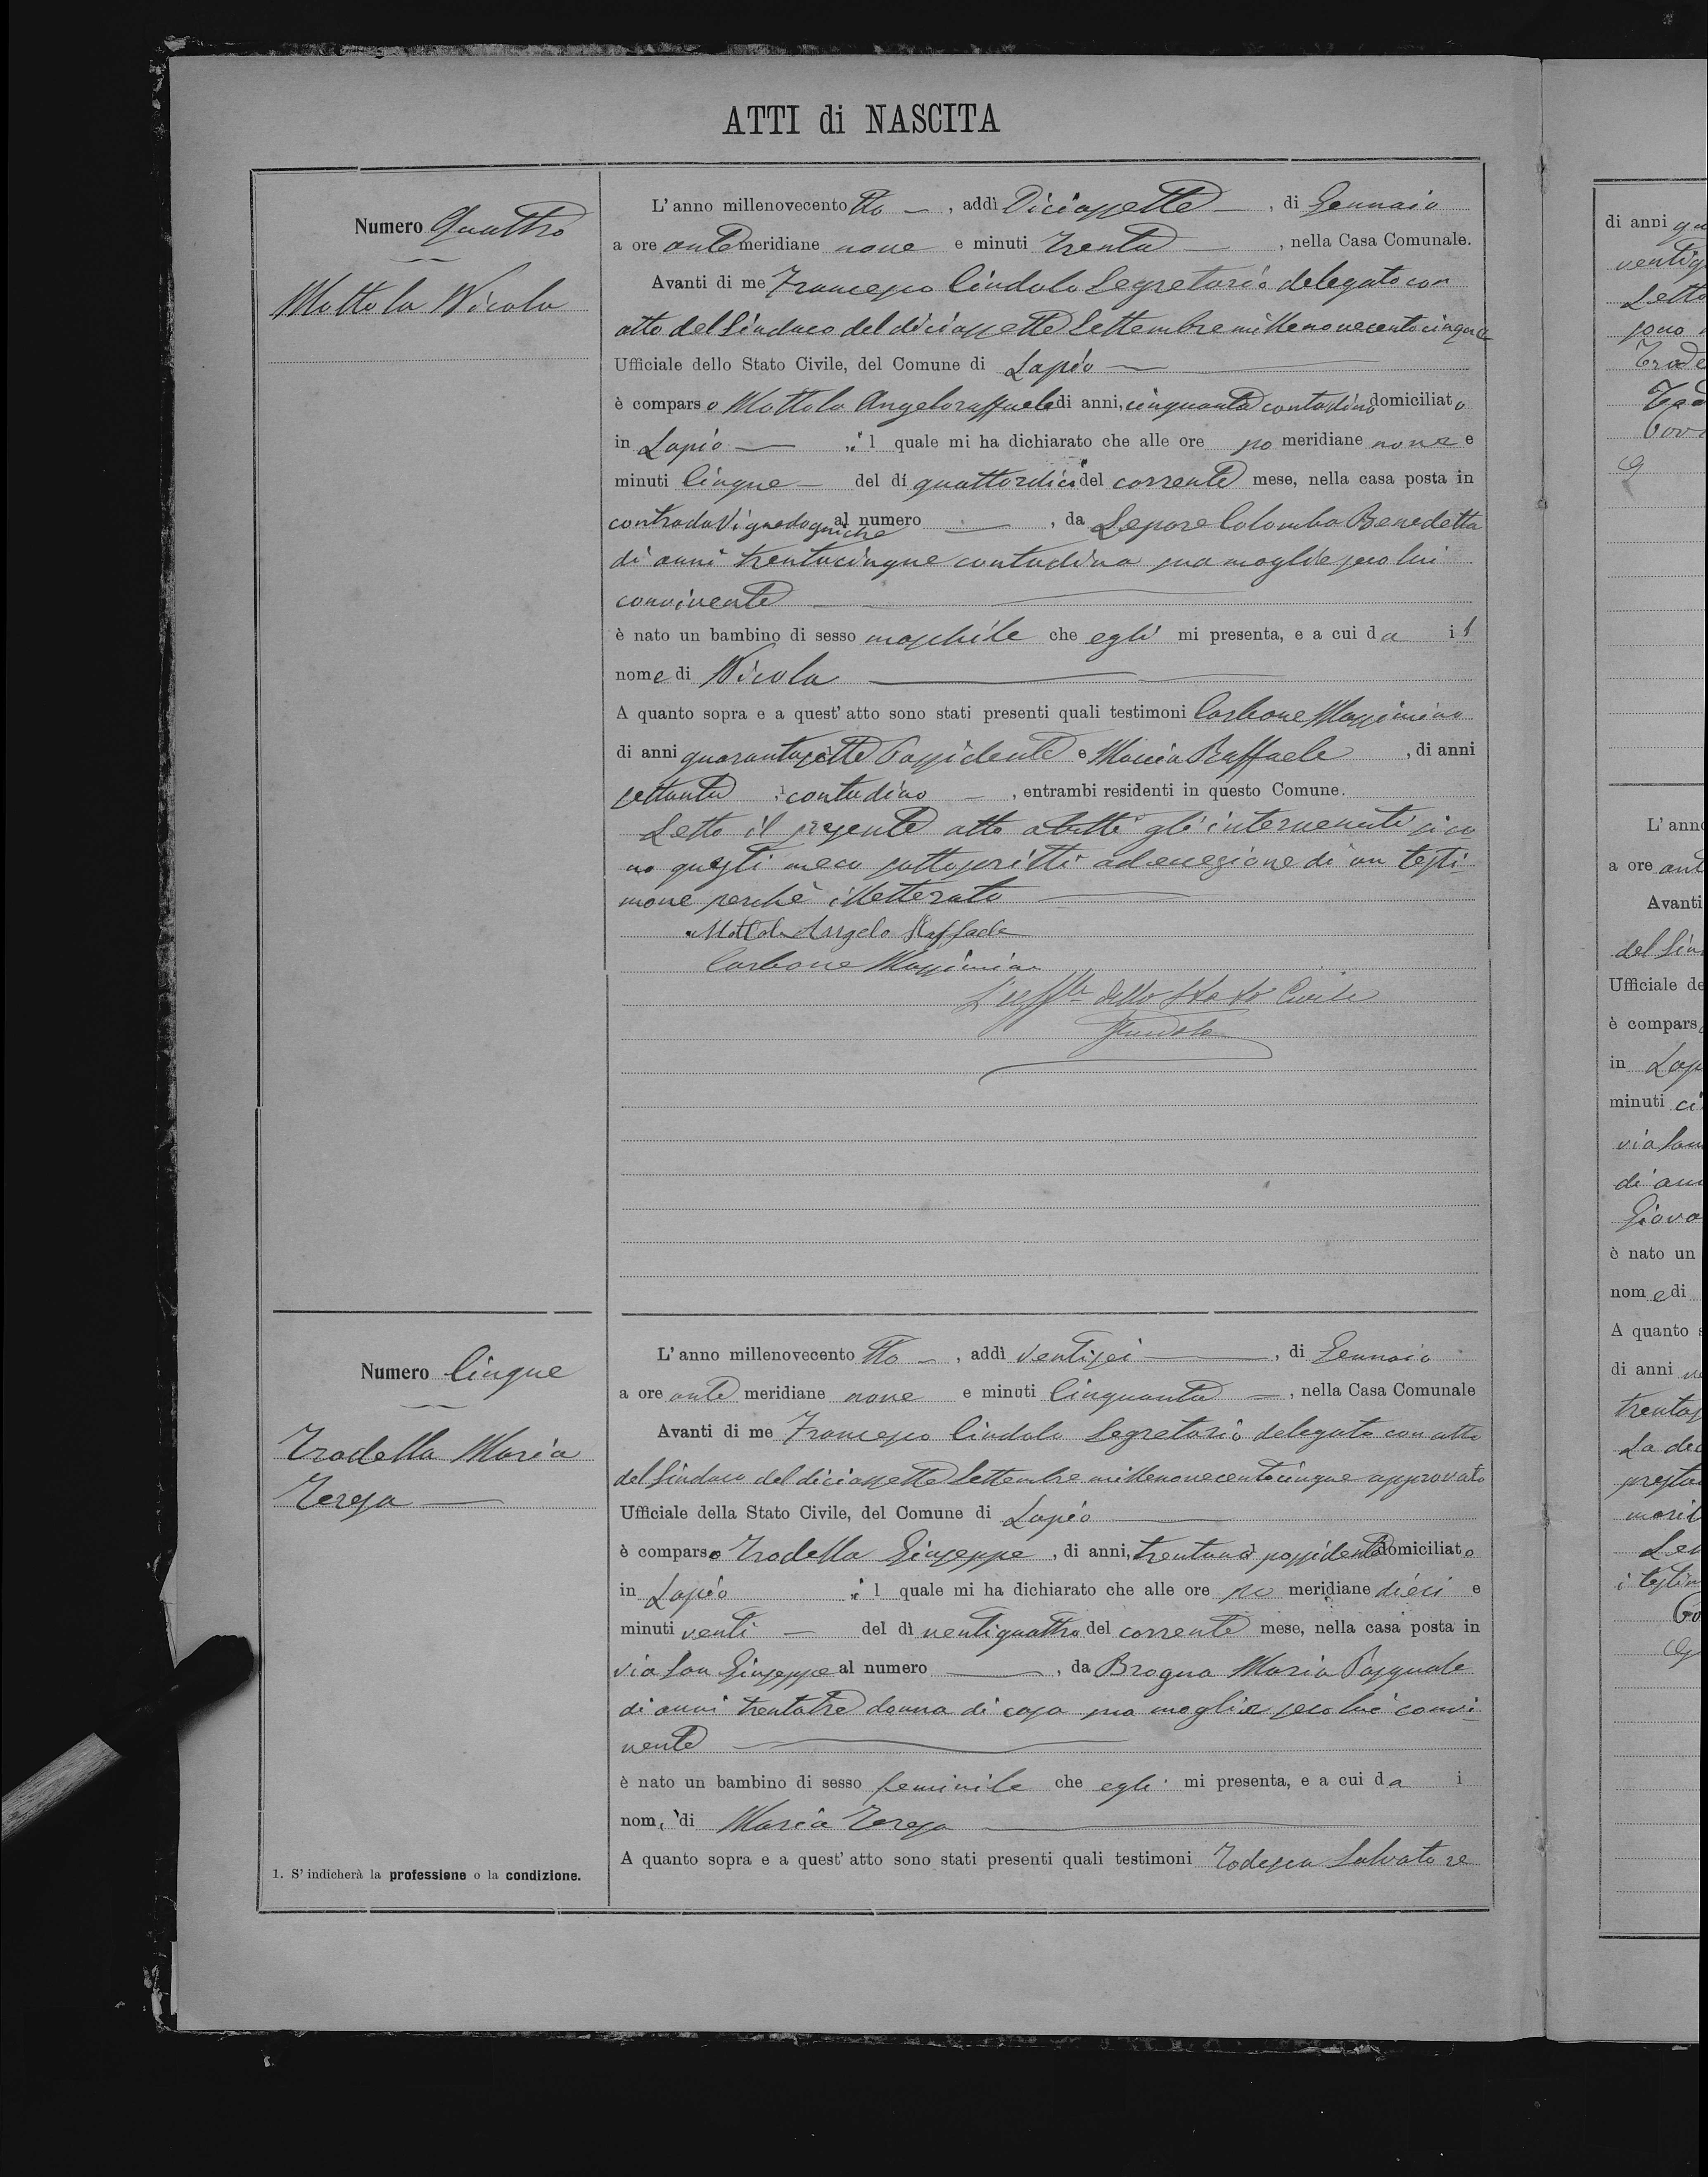 ATTI di NASCITA
Numero Quattro
Mottola Nicola
L'anno millenovecento otto, addì Diciassette, di Gennaio
a ore antemeridiane nove e minuti trenta, nella Casa Comunale.
Avanti di me Francesco Cindolo Segretario delegato con
atto del Sindaco del diciassette Settembre millenovecentocinque
Ufficiale dello Stato Civile, del Comune di Lapio
è comparso Mottola Angeloraffaele di anni, cinquanta contadino domiciliato
in Lapio il quale mi ha dichiarato che alle ore po meridiane nove e
minuti Cinque del dì quattordici del corrente mese, nella casa posta in
contrada al numero, da Lepore Colomba Benedetta
di anni trentacinque contadina sua moglie seco lui
convivente
è nato un bambino di sesso maschile che egli mi presenta, e a cui da il
nome di Nicola
A quanto sopra e a quest'atto sono stati presenti quali testimoni Carbone Massimino
di anni quarantasette Possidente e Moccia Raffaele, di anni
settanta contadino, entrambi residenti in questo Comune.
Letto il presente atto a tutti gli intervenuti si so
no questi meco sottoscritti ad eccezione di un testi-
mone perchè illetterato
Mottola Angelo Raffaele
Carbone Massimino
L'uff.le dello Stato Civile
FCindolo
Numero Cinque
Trodella Maria
Teresa
L'anno millenovecento otto, addì ventisei, di Gennaio
a ore ante meridiane nove e minuti Cinquanta, nella Casa Comunale
Avanti di me Francesco Cindolo Segretario delegato con atto
del Sindaco del diciassette Settembre millenovecentocinque approvato
Ufficiale della Stato Civile, del Comune di Lapio
è comparso Trodella Giuseppe, di anni, possidente domiciliato
in Lapio il quale mi ha dichiarato che alle ore po meridiane dieci e
minuti venti del dì ventiquattro del corrente mese, nella casa posta in
via San Giuseppe al numero, da Brogna Maria Pasquale
di anni trentatre donna di casa sua moglie seco lui convi-
vente
è nato un bambino di sesso feminile che egli mi presenta, e a cui da i
nom, di Maria Teresa
A quanto sopra e a quest'atto sono stati presenti quali testimoni Todesca Salvatore
1. S'indicherà la professione o la condizione.
di anni
L'ann
a ore ant
Avanti
Ufficiale de
è compars
in Lap
minuti
di an
è nato un
nome di
A quanto
di anni